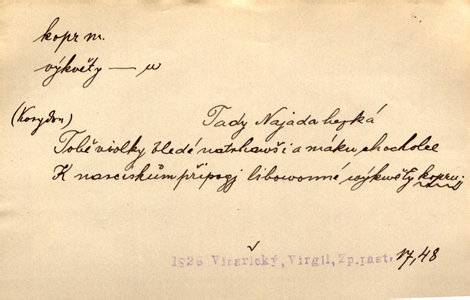 kopr m.
výkvěty — u
(Korydon) Tady Najáda hezká
Tobě violky bledé natrhawši a máku chocholce
K narciskům připogj libowonné výkvěty kopru;
1828 Vinařický, Virgil, Zp.past. 17,48